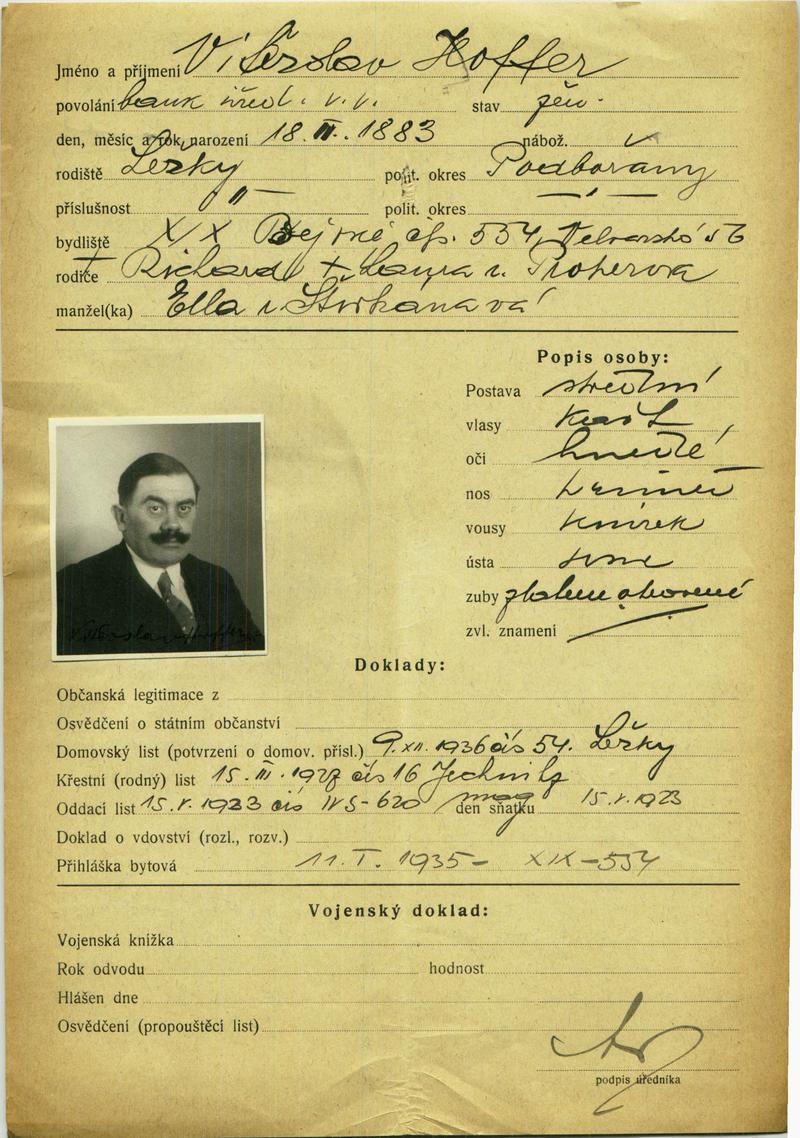 Jméno a příjmení Vítězslav Hoffer
povolání bank. úřed. v. v. stav žen.
den, měsíc a rok narození 18. III. 1883 nábož.
rodiště Ležky polit. okres Podbořany
příslušnost " — polit. okres — " —
bydliště XIX 554, Velvarská 56
rodiče Richard + Laura r.
manžel(ka) Ella r.
Popis osoby:
Postava střední
vlasy kašt.
oči hnědé
nos
vousy knírek
ústa
zuby
zvl. znamení
Doklady:
Občanská legitimace z
Osvědčení o státním občanství
Domovský list (potvrzení o domov. přísl.) 9. XII. 1936 čís 54. Ležky
Křestní (rodný) list 15. III. 1927 čís 16 Jechnitz
Oddací list 15. V. 1923 čís IV S-620 mag den sňatku 15. V. 1923
Doklad o vdovství (rozl., rozv.)
Přihláška bytová 11. I. 1935 - XIX - 554
Vojenský doklad:
Vojenská knížka
Rok odvodu hodnost
Hlášen dne
Osvědčení (propouštěcí list)
podpis úředníka